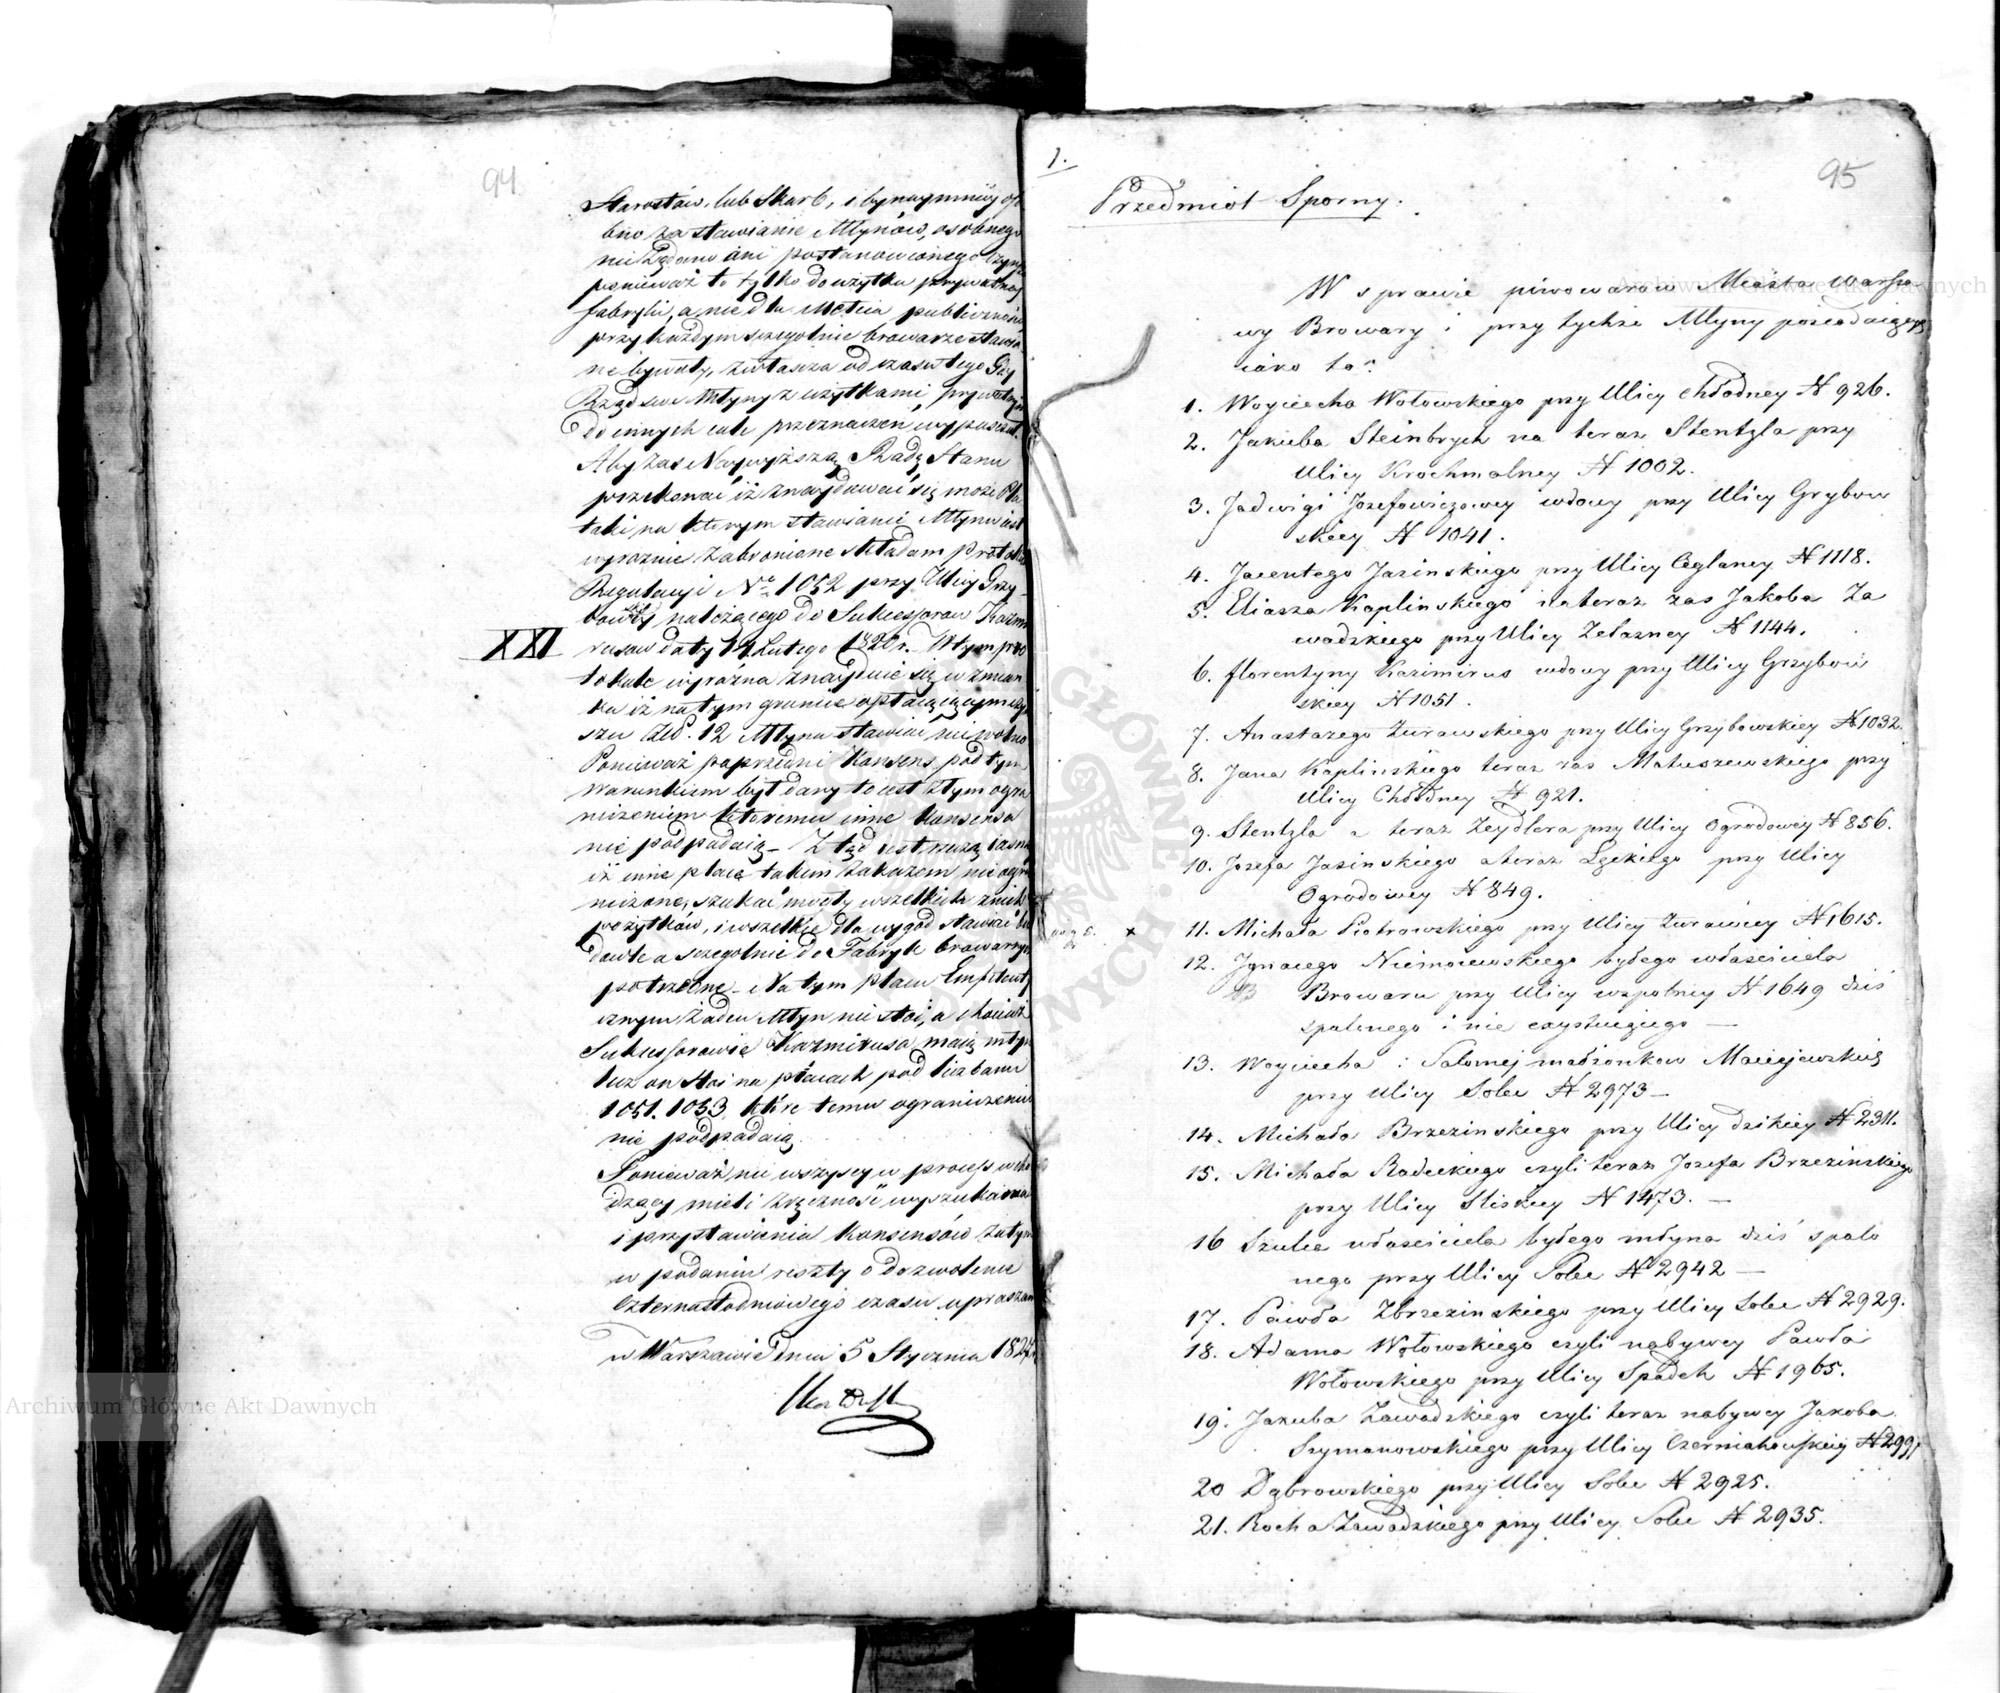 94
Starostów, lub Skarb, i bynaymniey oso
bno za stawianie Młynów, osobnego
nie żądano ani postanowionego Czynszu
ponieważ to tylko do użytku prywatney
fabryki, a nie dla mliwa publiczności
przy każdym szczególnie browarze stawia
ne bywały, zwłaszcza od czasu tego Gdy
Rząd swe Młyny z użytkami prywatnym
do innych celu przeznaczeń wypuszczał.
Aby zaś Naywyższą Radę Stanu
przekonać iż znaydować się może Pla
taki na którym stawianie Młynu iest
wyraźnie zabronione składam protokół
Regulacyi No 1052 przy Ulicy Grzy-
bowsky należącego do Sukcessorów Kazmi
XXI
rusów daty 14 Lutego 1820 r. W tym pro
tokule wyraźna znayduie się wzmian
ka iż na tym gruncie opłacaiącym czyn
szu Złł. 12 Młyna stawiać nie wolno
Ponieważ poprzedni Konsens pod tym
warunkiem był dany to iest z tym ogra
niczeniem któremu inne Konsensa
nie podpadaią – Ztąd iest rzeczą iasną
iż inne place takim zakazem nie ogra
niczone, szukać mogły wszelkich z nich
pożytków, i wszelkie dla wygod stawiać bu
dowle a szczególnie do Fabryk browarnych
potrzebne – Na tym placu Emfiteuty
cznym żaden Młyn nie stoi, a chociaż
Sukcessorowie Kazmirusa maią młyn
lecz on stoi na placach pod liczbami
1051. 1053. które temu ograniczeniu
nie podpadaią.
Ponieważ nie wszyscy w process wcho
dzący mieli zręczność wyszukania
i przystawienia Konsensów zatym
w podaniu reszty o dozwolenie
Czternastodniowego czasu upraszam
w Warszawie dnia 5 Stycznia 182
95
1.
Przedmiot Sporny.
W sprawie piwowarów Miasta Warsza
wy Browary i przy tychże Młyny posiadaiących
iako to:
1. Woyciecha Wołowskiego przy Ulicy Chłodney N 926.
2. Jakuba Steinbrych na teraz Stentzla przy
Ulicy Krochmalney N 1002.
3. Jadwigi Jozefowiczowey wdowy przy Ulicy Grzybow
skiey N 1041.
4. Jacentego Jasinskiego przy Ulicy Ceglaney N 1118.
5. Eliasza Kaplinskiego na teraz zas Jakoba Za
wadzkiego przy Ulicy Zelazney N 1144.
6. florentyny Kazimirus wdowy przy Ulicy Grzybow
skiey N 1051.
7. Anastazego Zurawskiego przy Ulicy Grzybowskiey N 1032.
8. Jana Kaplinskiego teraz zas Matuszewskiego przy
Ulicy Chłodney N 921.
9. Stentzla a teraz Zeydlera przy Ulicy Ogrodowey N 856.
10. Jozefa Jasinskiego a teraz Łęckiego przy Ulicy
Ogrodowey N 849.
× 11. Michała Piotrowskiego przy Ulicy Zurawiey N 1615.
12. Ignacego Niemoiewskiego byłego właściciela
Browaru przy Ulicy wspolney N 1649 dziś
spalonego i nie exystuiącego —
13. Woyciecha i Salomej małżonkow Macieiewskich
przy Ulicy Solec N 2973 —
14. Michała Brzezinskiego przy Ulicy dzikiey N 2311.
15. Michała Radeckiego czyli teraz Jozefa Brzezinskiego
przy Ulicy Sliskiey N 1473. —
16 Szulca właściciela byłego młyna dziś spalo
nego przy Ulicy Solec N 2942 —
17. Pawła Zbrzezinskiego przy Ulicy Solec N 2929.
18. Adama Wołowskiego czyli nabywcy Pawła
Wołowskiego przy Ulicy Spadek N 1965.
19. Jakuba Zawadzkiego czyli teraz nabywcy Jakoba
Szymanowskiego przy Ulicy Czerniakowskiey N 2991
20 Dąbrowskiego przy Ulicy Solec N 2925.
21. Rocha Zawadzkiego przy Ulicy Solec N 2935.
Archiwum Główne Akt Dawnych
Archiwum Główne Akt Dawnych